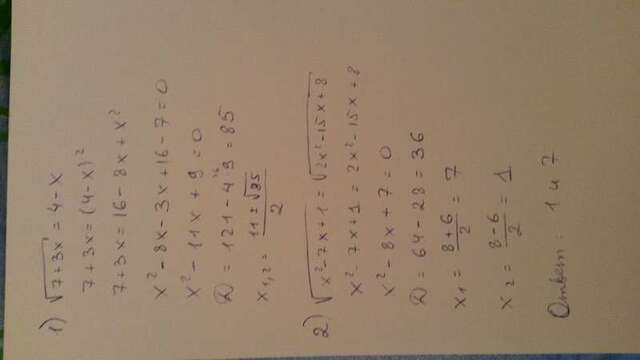 1) √7+3x = 4-x
7+3x = (4-x)²
7+3x = 16-8x+x²
x²-8x-3x+16-7=0
x²-11x+9=0
D = 121-4·9 = 85
x₁,₂ = (11±√85)/2
2) √x²-7x+1 = √2x²-15x+8
x²-7x+1 = 2x²-15x+8
x²-8x+7=0
D = 64-28 = 36
x₁ = (8+6)/2 = 7
x₂ = (8-6)/2 = 1
Ответ: 1 и 7